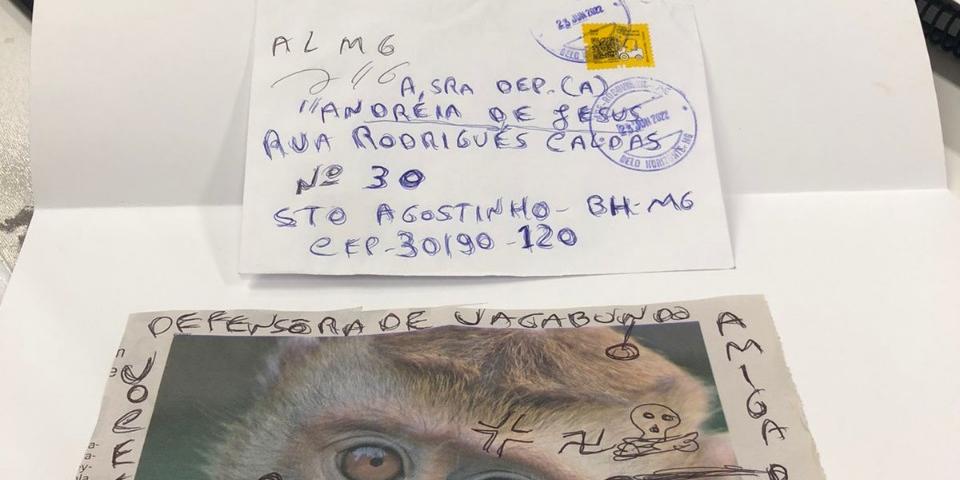 23 JUN 2022
ALMG
A, SRA DEP.(A)
"ANDRÉIA DE JESUS
RUA RODRIGUÊS CALDAS
Nº 30
STO AGOSTINHO- BH-MG
CEP-30190-120
23 JUN 2022
BELO HORIZONTE-MG
DEFENSÔRA DE VAGABUNDO
AMIGA